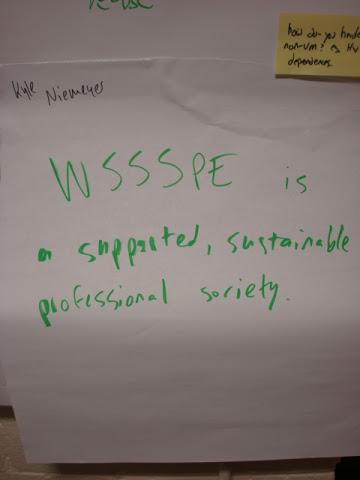 reuse
how do you handle
dependences
Kyle Niemeyer
WSSSPE is
a supported, sustainable
professional society.